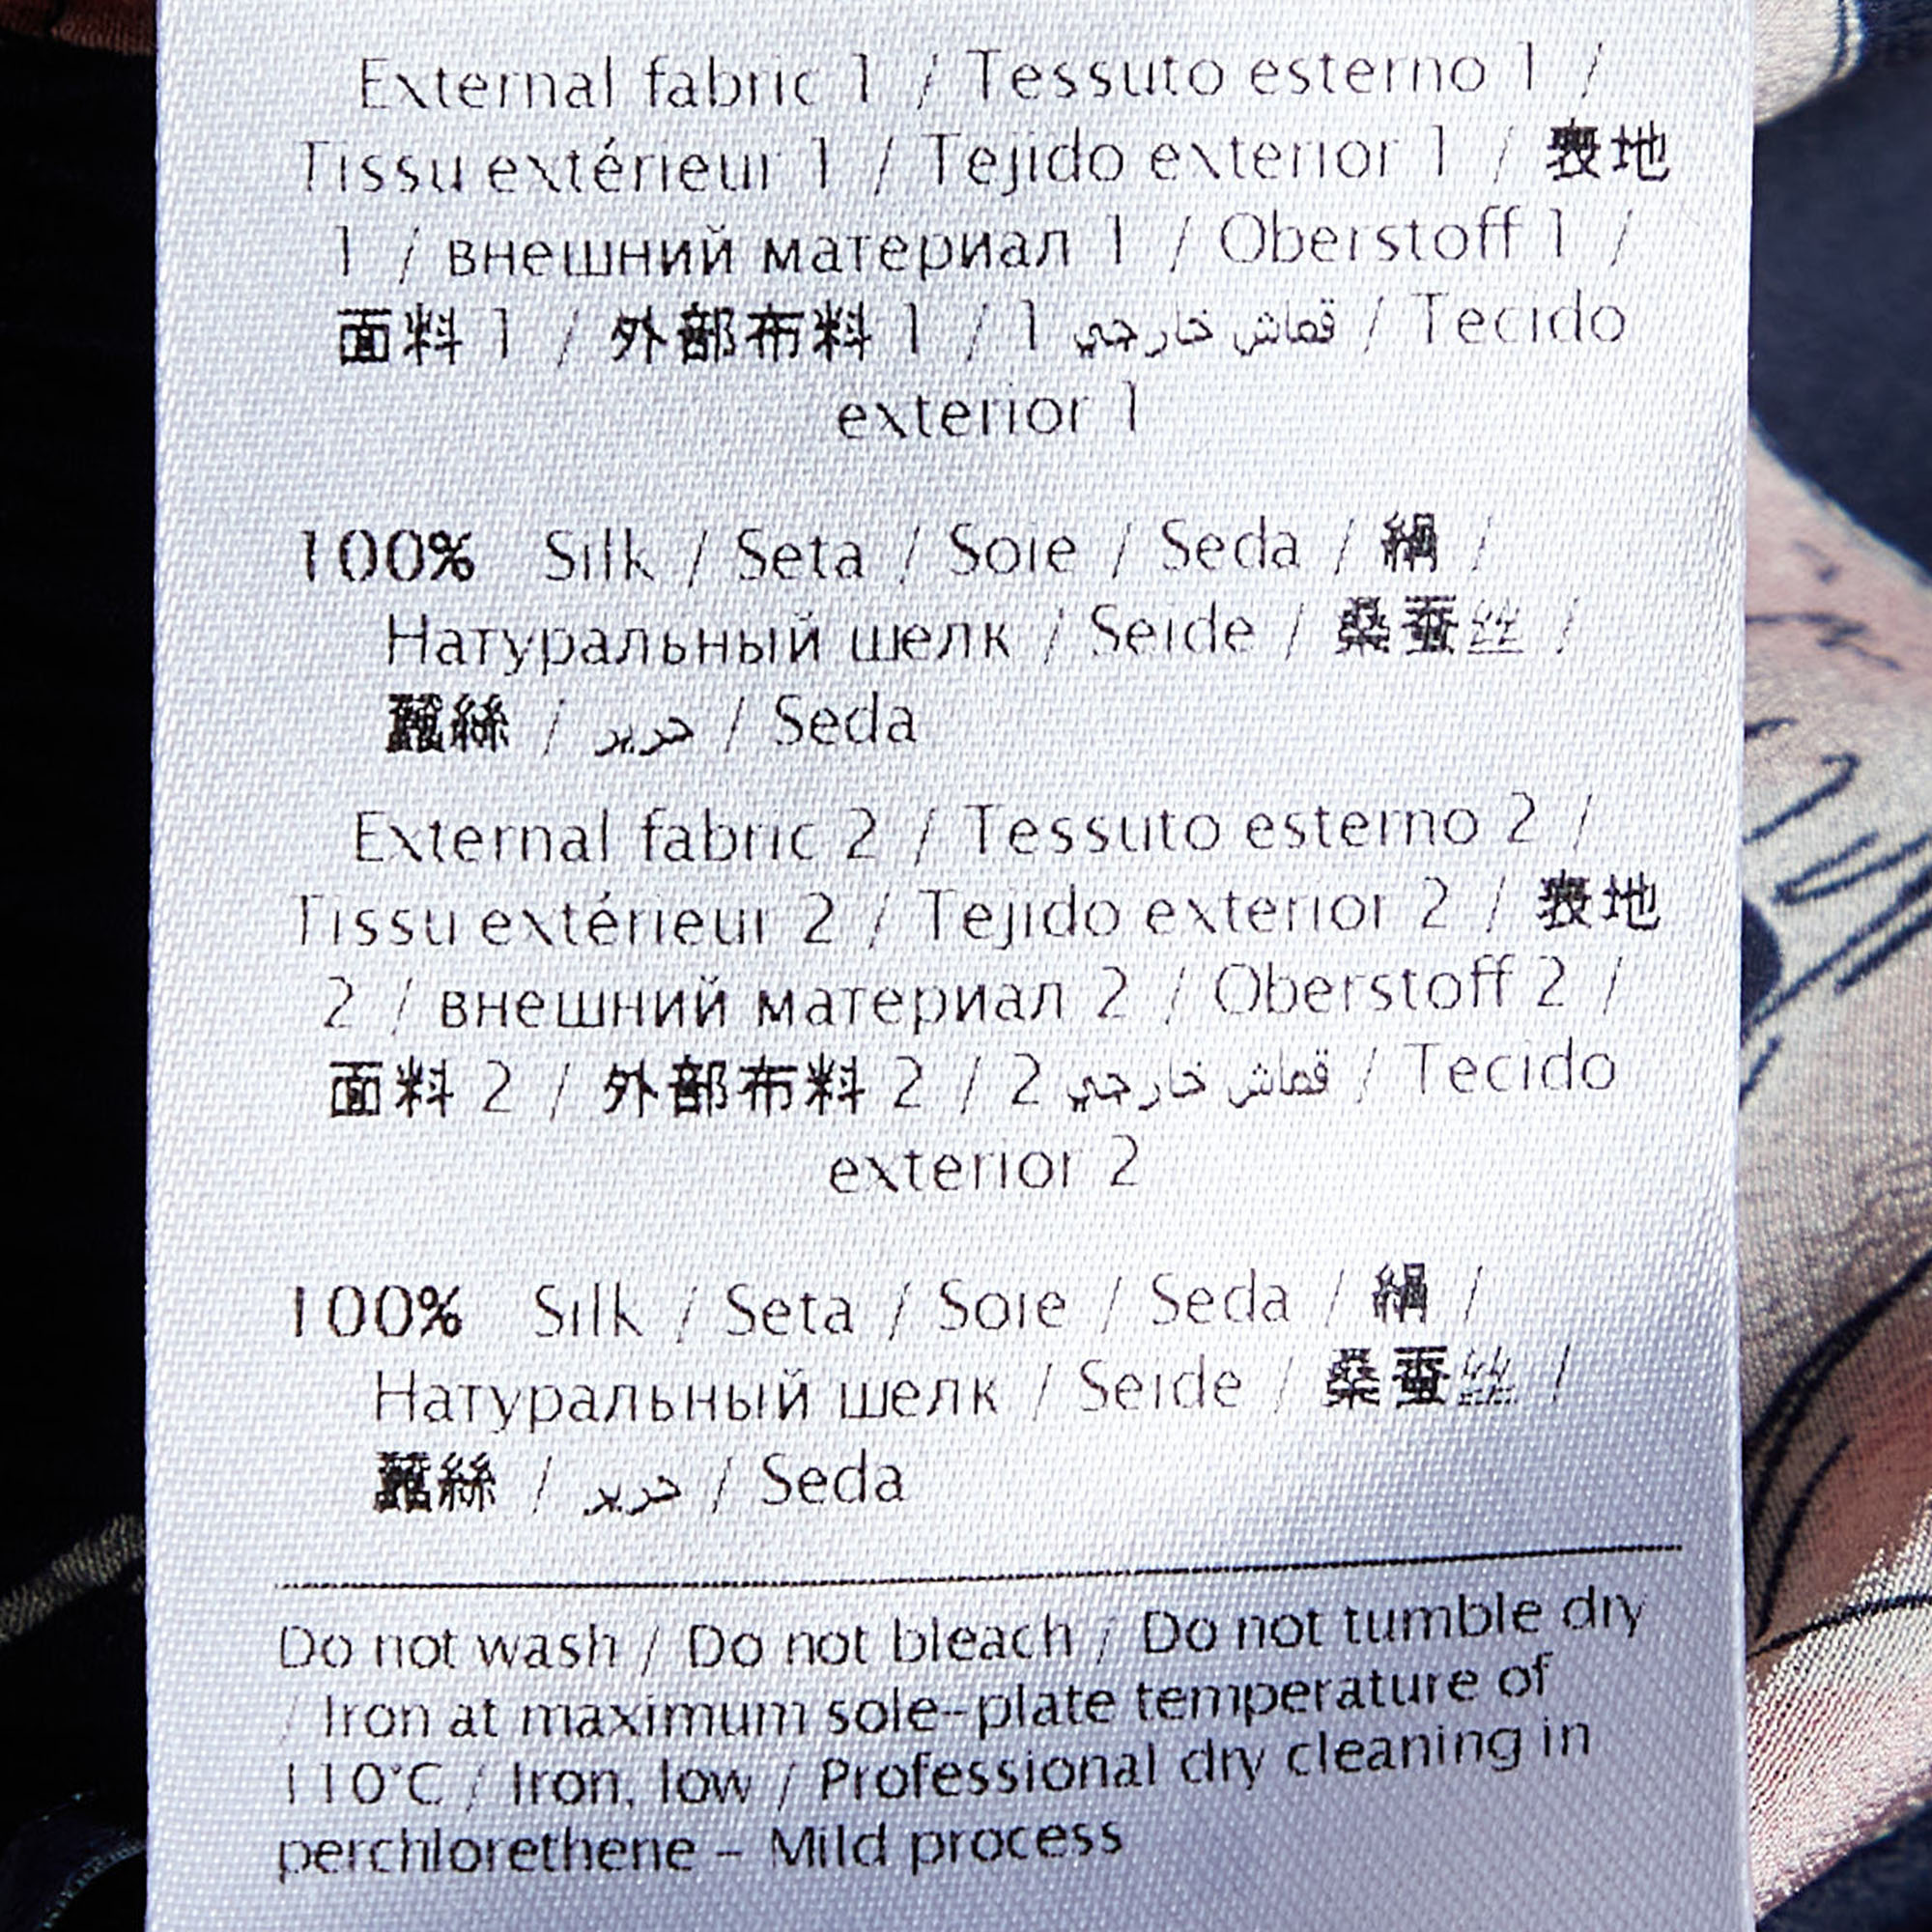 External fabric 1 / Tessuto esterno 1 /
Tissu extérieur 1 / Tejido exterior 1 / 表地
1 / внешний материал 1 / Oberstoff 1 /
面料 1 / 外部布料 1 / 1 قماش خارجي / Tecido
exterior 1
100% Silk / Seta / Soie / Seda / 絹 /
Натуральный шелк / Seide / 桑蚕丝 /
蠶絲 / حرير / Seda
External fabric 2 / Tessuto esterno 2 /
Tissu extérieur 2 / Tejido exterior 2 / 表地
2 / внешний материал 2 / Oberstoff 2 /
面料 2 / 外部布料 2 / 2 قماش خارجي / Tecido
exterior 2
100% Silk / Seta / Soie / Seda / 絹 /
Натуральный шелк / Seide / 桑蚕丝 /
蠶絲 / حرير / Seda
Do not wash / Do not bleach / Do not tumble dry
/ Iron at maximum sole-plate temperature of
110°C / Iron, low / Professional dry cleaning in
perchlorethene - Mild process